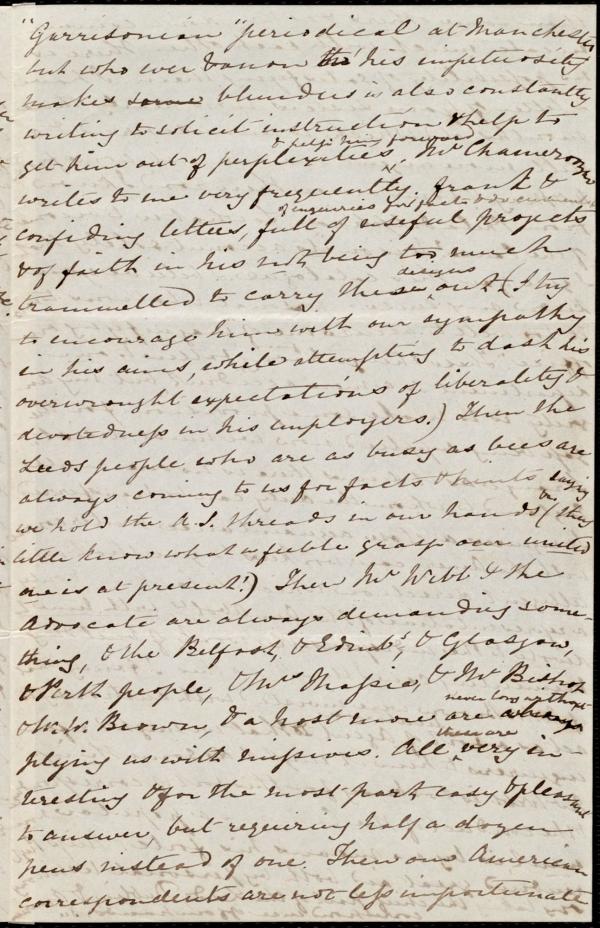 "Garrisonian" periodical at Manchester
but who ever & anon his impetuosity
makes some blunders is also constantly
writing to solicit instruction & help to
& help him forward
get him out of perplexities. Mr Chamerovzow
writes to me very frequently, frank &
of inquiries for facts & documents
confiding letters, full of useful projects
& of faith in his not being too much
designs
trammelled to carry these out (I try
to encourage him with our sympathy
in his aims, while attempting to dash his
overwrought expectations of liberality &
devotedness in his employers.) Then the
Leeds people who are as busy as bees are
always coming to us for facts & hints saying
we hold the A.S. threads in our hands (they
little know what a feeble grasp our united
one is at present!) Then Mr Webb & the
Advocate are always demanding some-
thing, & the Belfast, & Edinb., & Glasgow,
& Perth people, & Mrs Massie, & Mr Bishop
never long without
& W. W. Brown, & a host more are always
these are
plying us with missives. All very in-
teresting & for the most part easy & pleasant
to answer, but requiring half a dozen
pens instead of one. Then our American
correspondents are not less importunate